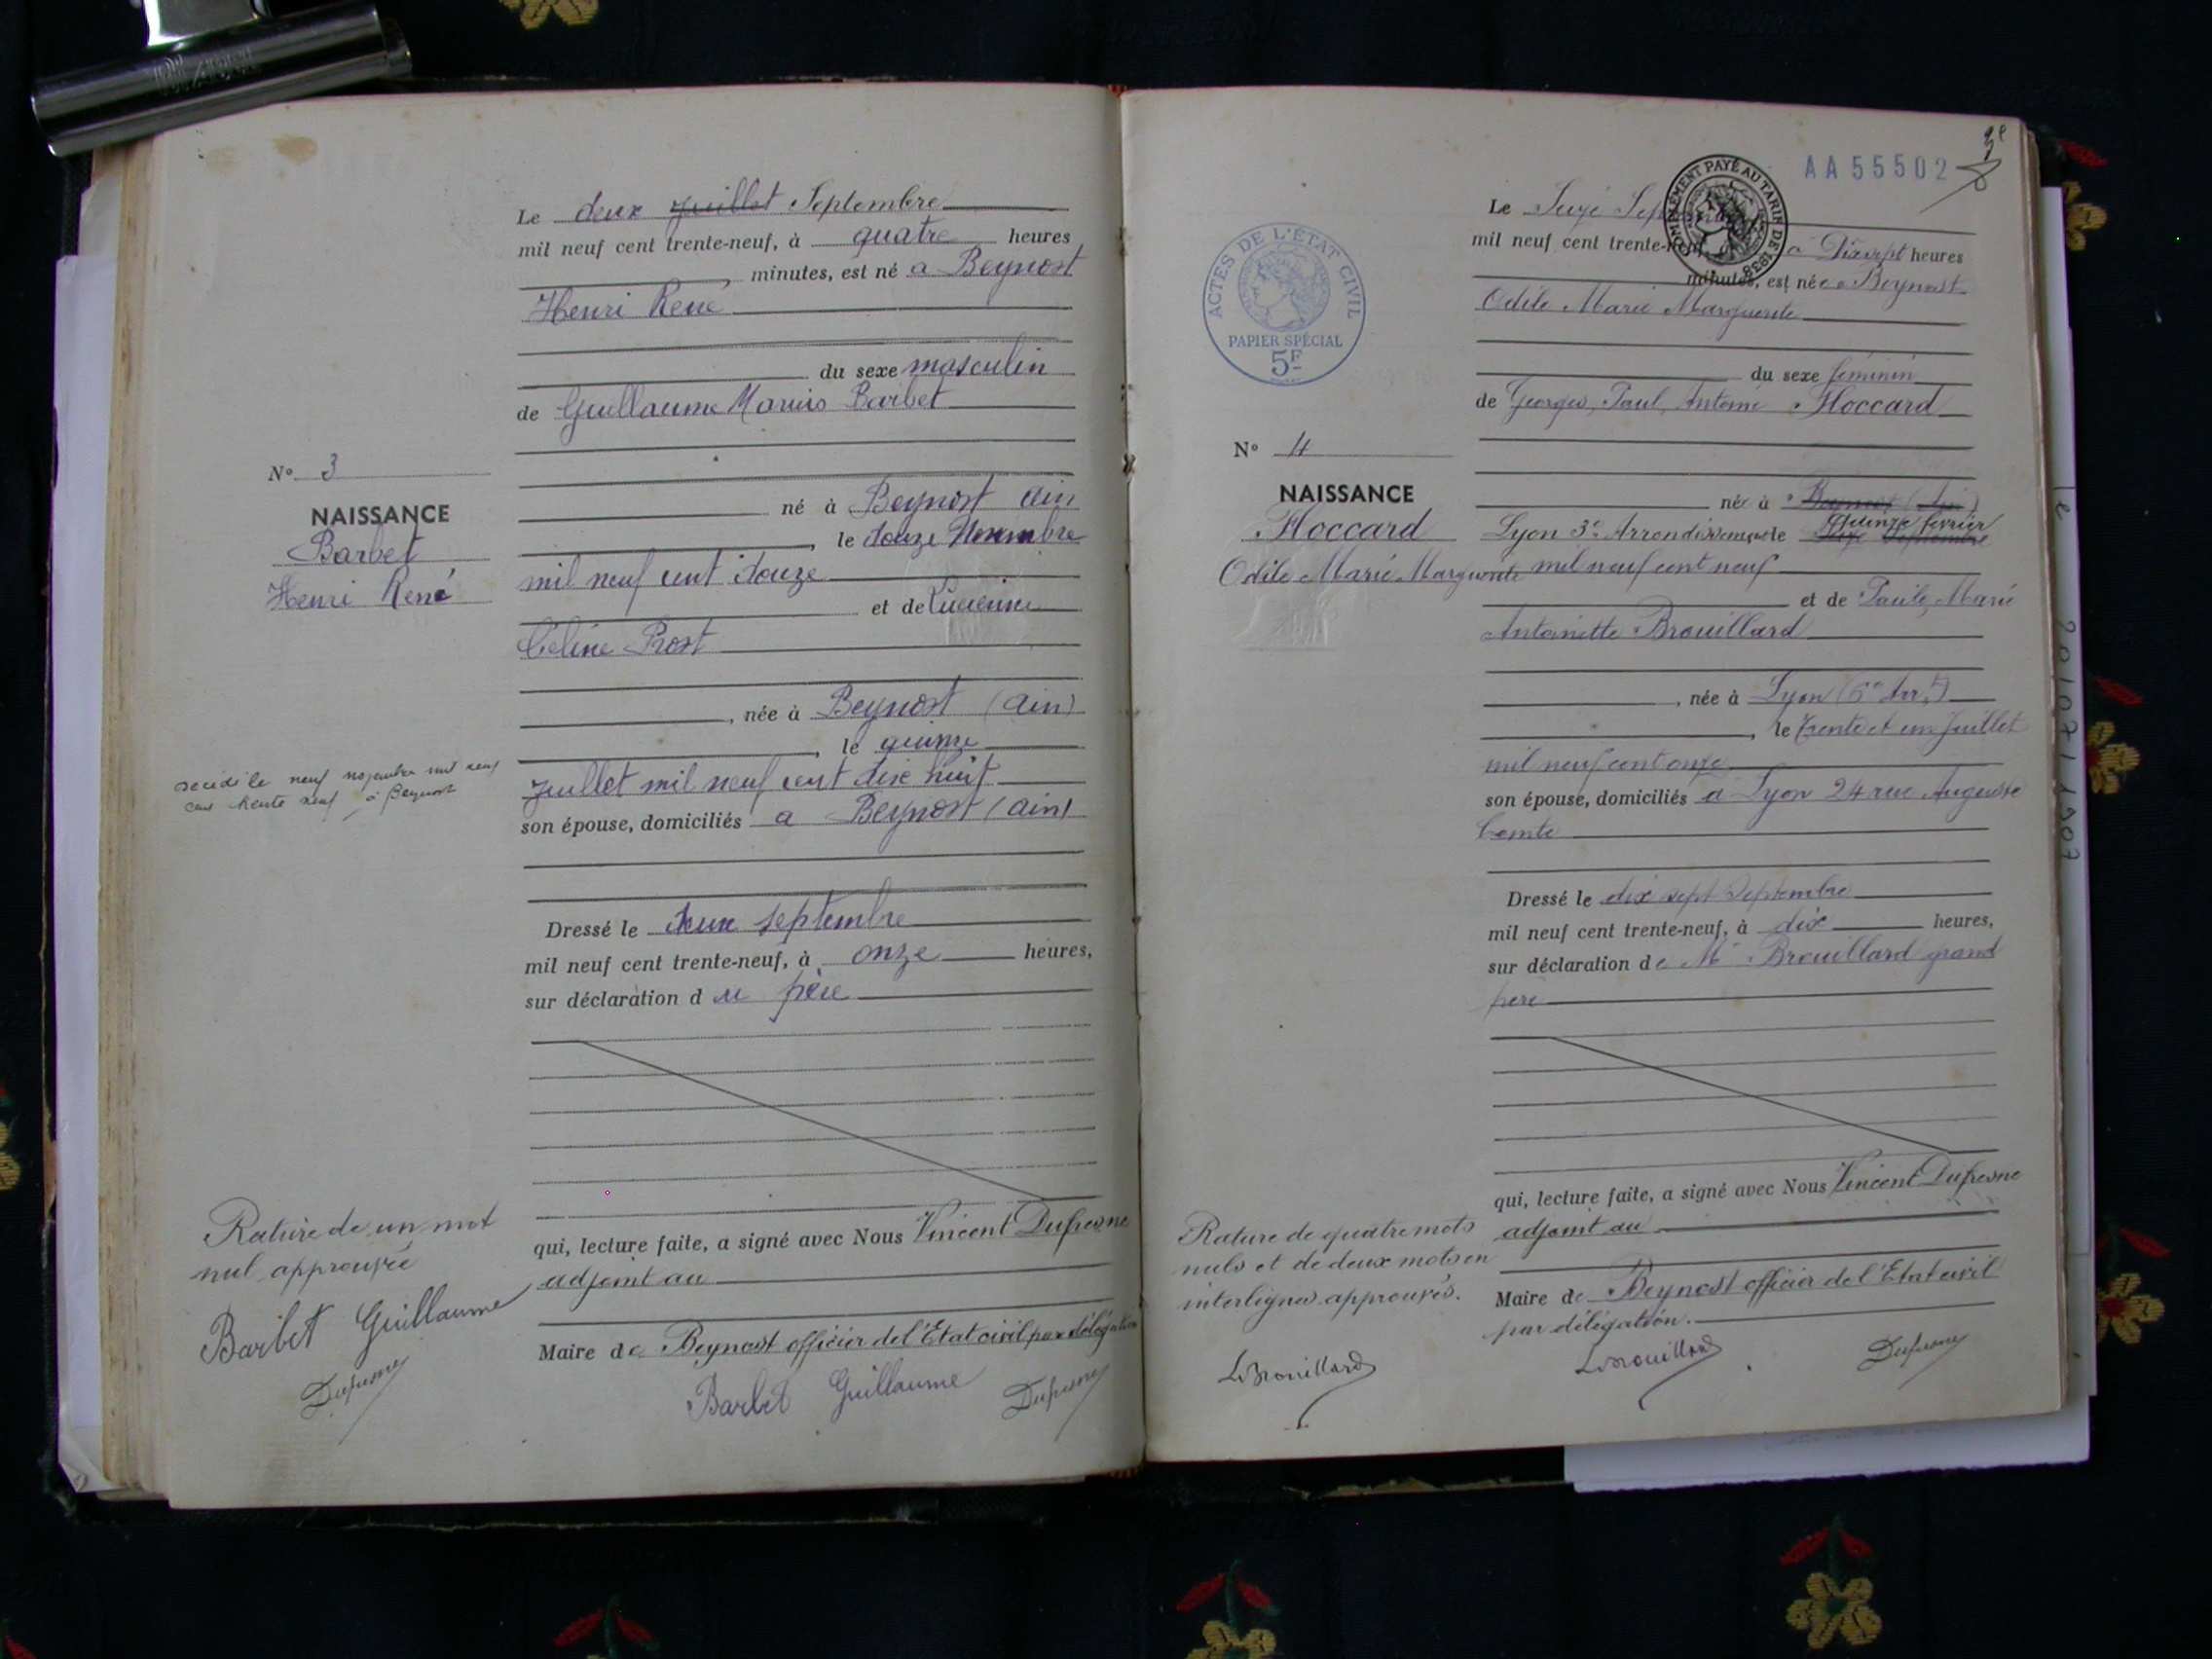 Le deux Juillet Septembre
mil neuf cent trente-neuf, à quatre heures
minutes, est né a Beynost
Henri René
du sexe masculin
de Guillaume Marius Barbet
né à Beynost Ain
, le douze Novembre
mil neuf cent douze
et de Lucienne
Céline Prost
, née à Beynost (Ain)
, le quinze
Juillet mil neuf cent dix huit
son épouse, domiciliés a Beynost (Ain)
Dressé le deux septembre
mil neuf cent trente-neuf, à onze heures,
sur déclaration du père
qui, lecture faite, a signé avec Nous Vincent Dufresne
adjoint au
Maire de Beynost officier de l'Etat civil par délégation
Barbet Guillaume Dufresne
N° 3
NAISSANCE
Barbet
Henri René
décédé le neuf novembre mil neuf
cent trente neuf à Beynost
Rature de un mot
nul approuvée
Barbet Guillaume
Dufresne
AA 55502
COMPLÉMENT PAYÉ AU TARIF DE 1938
ACTES DE L'ÉTAT CIVIL
PAPIER SPÉCIAL
5F
Le Seize Septembre
mil neuf cent trente-neuf, à Dixsept heures
minutes, est née a Beynost
Odile Marie Marguerite
du sexe féminin
de Georges, Paul, Antoine Hoccard
né à Beynost (Ain)
Quinze février
Lyon 3e Arrondissement le Seize Septembre
mil neuf cent neuf
et de Paule, Marie
Antoinette Brouillard
, née à Lyon (6e Arrt)
, le Trente et un Juillet
mil neuf cent onze
son épouse, domiciliés à Lyon 24 rue Auguste
Comte
Dressé le dix sept Septembre
mil neuf cent trente-neuf, à dix heures,
sur déclaration de Mr Brouillard grand
père
qui, lecture faite, a signé avec Nous Vincent Dufresne
adjoint au
Maire de Beynost officier de l'Etat civil
par délégation.
LBrouillard Dufresne
N° 4
NAISSANCE
Hoccard
Odile Marie Marguerite
Rature de quatre mots
nuls et de deux mots en
interlignes approuvés.
LBrouillard